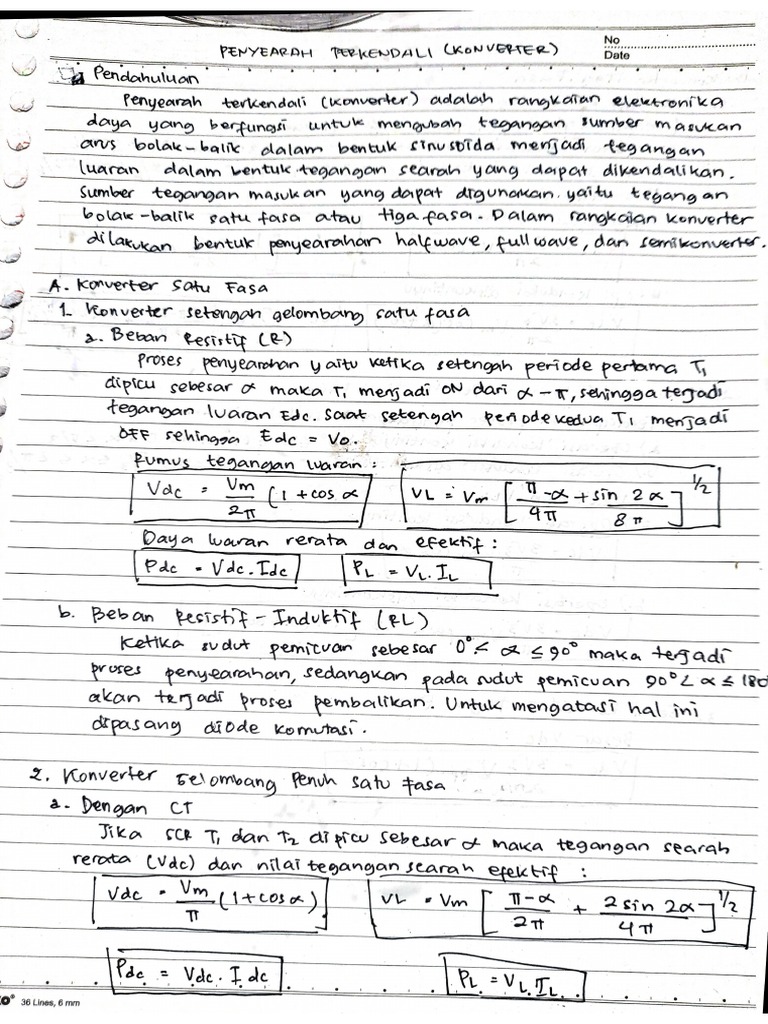 No
Date
PENYEARAH TERKENDALI (KONVERTER)
Pendahuluan
Penyearah terkendali (konverter) adalah rangkaian elektronika
daya yang berfungsi untuk mengubah tegangan sumber masukan
arus bolak-balik dalam bentuk sinusoida menjadi tegangan
luaran dalam bentuk tegangan searah yang dapat dikendalikan.
Sumber tegangan masukan yang dapat digunakan yaitu tegangan
bolak-balik satu fasa atau tiga fasa. Dalam rangkaian konverter
dilakukan bentuk penyearahan halfwave, fullwave, dan semikonverter.
A. Konverter Satu Fasa
1. Konverter setengah gelombang satu fasa
a. Beban Resistif (R)
Proses penyearahan yaitu ketika setengah periode pertama T₁
dipicu sebesar α maka T₁ menjadi ON dari α - π, sehingga terjadi
tegangan luaran Edc. Saat setengah periode kedua T₁ menjadi
OFF sehingga Edc = Vo.
Rumus tegangan luaran :
Vdc = Vm/2π (1 + cos α VL = Vm [π-α/4π + sin 2α/8π]^1/2
Daya luaran rerata dan efektif :
Pdc = Vdc . Idc PL = VL . IL
b. Beban Resistif - Induktif (RL)
Ketika sudut pemicuan sebesar 0° < α ≤ 90° maka terjadi
proses penyearahan, sedangkan pada sudut pemicuan 90° < α ≤ 180
akan terjadi proses pembalikan. Untuk mengatasi hal ini
dipasang diode komutasi.
2. Konverter Gelombang Penuh satu fasa
a. Dengan CT
Jika SCR T₁ dan T₂ dipicu sebesar α maka tegangan searah
rerata (Vdc) dan nilai tegangan searah efektif :
Vdc = Vm/π (1 + cos α) VL = Vm [π-α/2π + 2 sin 2α/4π]^1/2
Pdc = Vdc . Idc PL = VL . IL
36 Lines, 6 mm